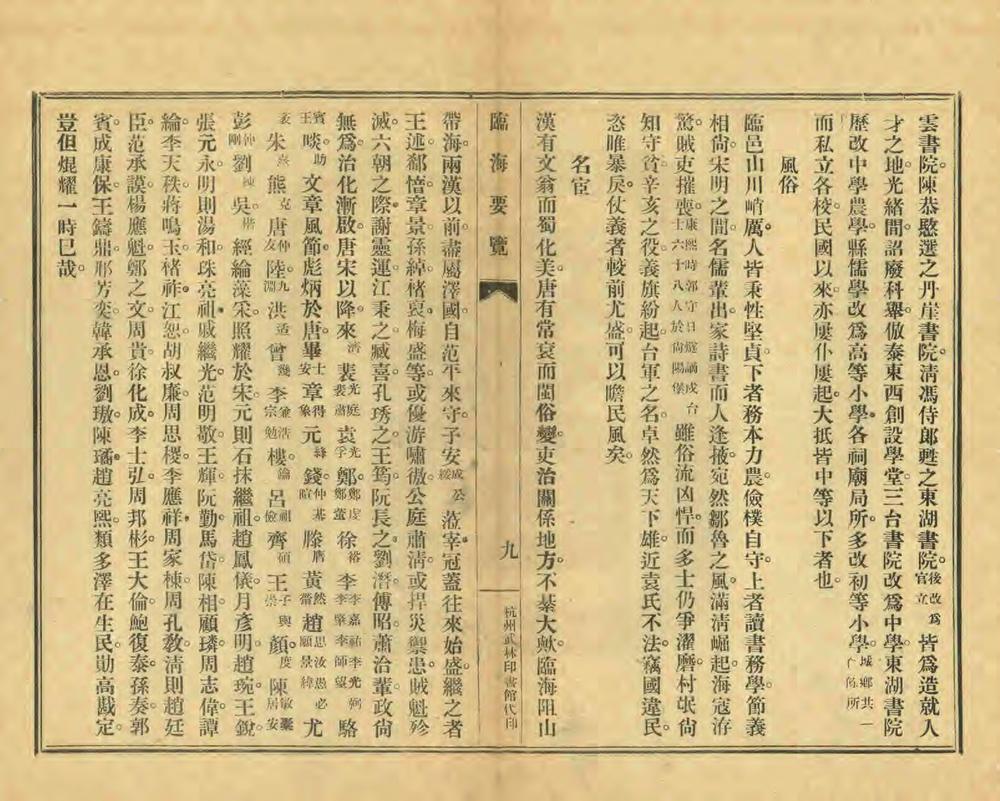 雲書院。陳恭愍選之丹崖書院。清馮侍郎甦之東湖書院。後改爲官立皆爲造就人
才之地。光緒間。詔廢科舉。倣泰東西創設學堂。三台書院改爲中學。東湖書院
歷改中學農學。縣儒學改爲高等小學。各祠廟局所。多改初等小學。城鄉共一所
而私立各校。民國以來。亦屢仆屢起。大抵皆中等以下者也。
風俗
臨邑山川峭厲。人皆秉性堅貞。下者務本力農。儉樸自守。上者讀書務學。節義
相尙。宋明之間。名儒輩出。家詩書而人逢掖。宛然鄒魯之風。滿淸崛起。海寇洊
驚。賊吏摧喪。康熙時郭守日燧謫戍台士六十八人於尙陽堡雖俗流凶悍。而多士仍爭濯磨。村氓尙
知守貧。辛亥之役。義旗紛起。台軍之名。卓然爲天下雄。近袁氏不法。竊國違民。
恣睢暴戾。仗義者較前尤盛。可以瞻民風矣。
名宦
漢有文翁而蜀化美。唐有常袞而閩俗變。吏治關係地方。不綦大歟。臨海阻山
臨海要覽
九
杭州武林印書館代印
帶海。兩漢以前。盡屬澤國。自范平來守。子安成公綏涖宰。冠蓋往來始盛。繼之者
王述。郗愔。章景。孫綽。楮裒。梅盛等。或優游嘯傲。公庭肅淸。或捍災禦患。賊魁殄
滅。六朝之際。謝靈運。江秉之。臧喜。孔琇之。王筠。阮長之。劉潛。傅昭。蕭治輩。政尙
無爲。治化漸啟。唐宋以降。來濟裴光庭裴肅袁光孚鄭鄭虔鄭薰徐裕李李嘉祐李光弼李肇李師望駱
賓王啖助文章風節。彪炳於唐。畢士安章得象元絳錢仲暄滕膺黃然黃𤲞趙思汝愚必愿景緯尤
袤朱熹熊克唐仲友陸九淵洪适曾幾李兼浩宗勉樓鑰呂祖儉齊碩王子與崇顏度陳敏橐居安
彭仲剛劉棟吳楷經綸藻采。照耀於宋。元則石抹繼祖。趙鳳儀。月彥明。趙琬。王銳。
張元永。明則湯和。珠亮祖。戚繼光。范明敬。王輝。阮勤。馬岱。陳相。顧璘。周志偉。譚
綸。李天秩。蔣鳴玉。楮祚。江恕。胡叔廉。周思稷。李應祥。周家棟。周孔敎。淸則趙廷
臣。范承謨。楊應魁。鄭之文。周貴。徐化成。李士弘。周邦彬。王大倫。鮑復泰。孫奏。郭
賓。成康保。王鑄鼎。邢芳奕。韓承恩。劉璈。陳璚。趙亮熙。類多澤在生民。勛高戡定。
豈但焜耀一時已哉。